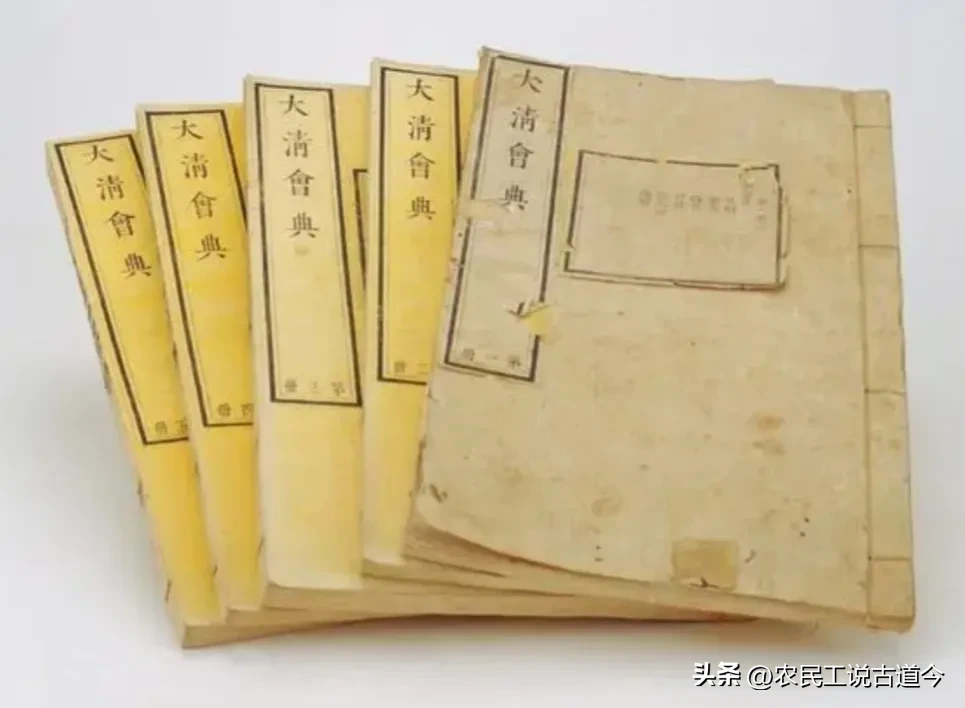 大清會典
第一冊
大清會典
二冊
大清會典
第三冊
大清會典
四冊
大清會典
五冊
头条 @农民工说古道今